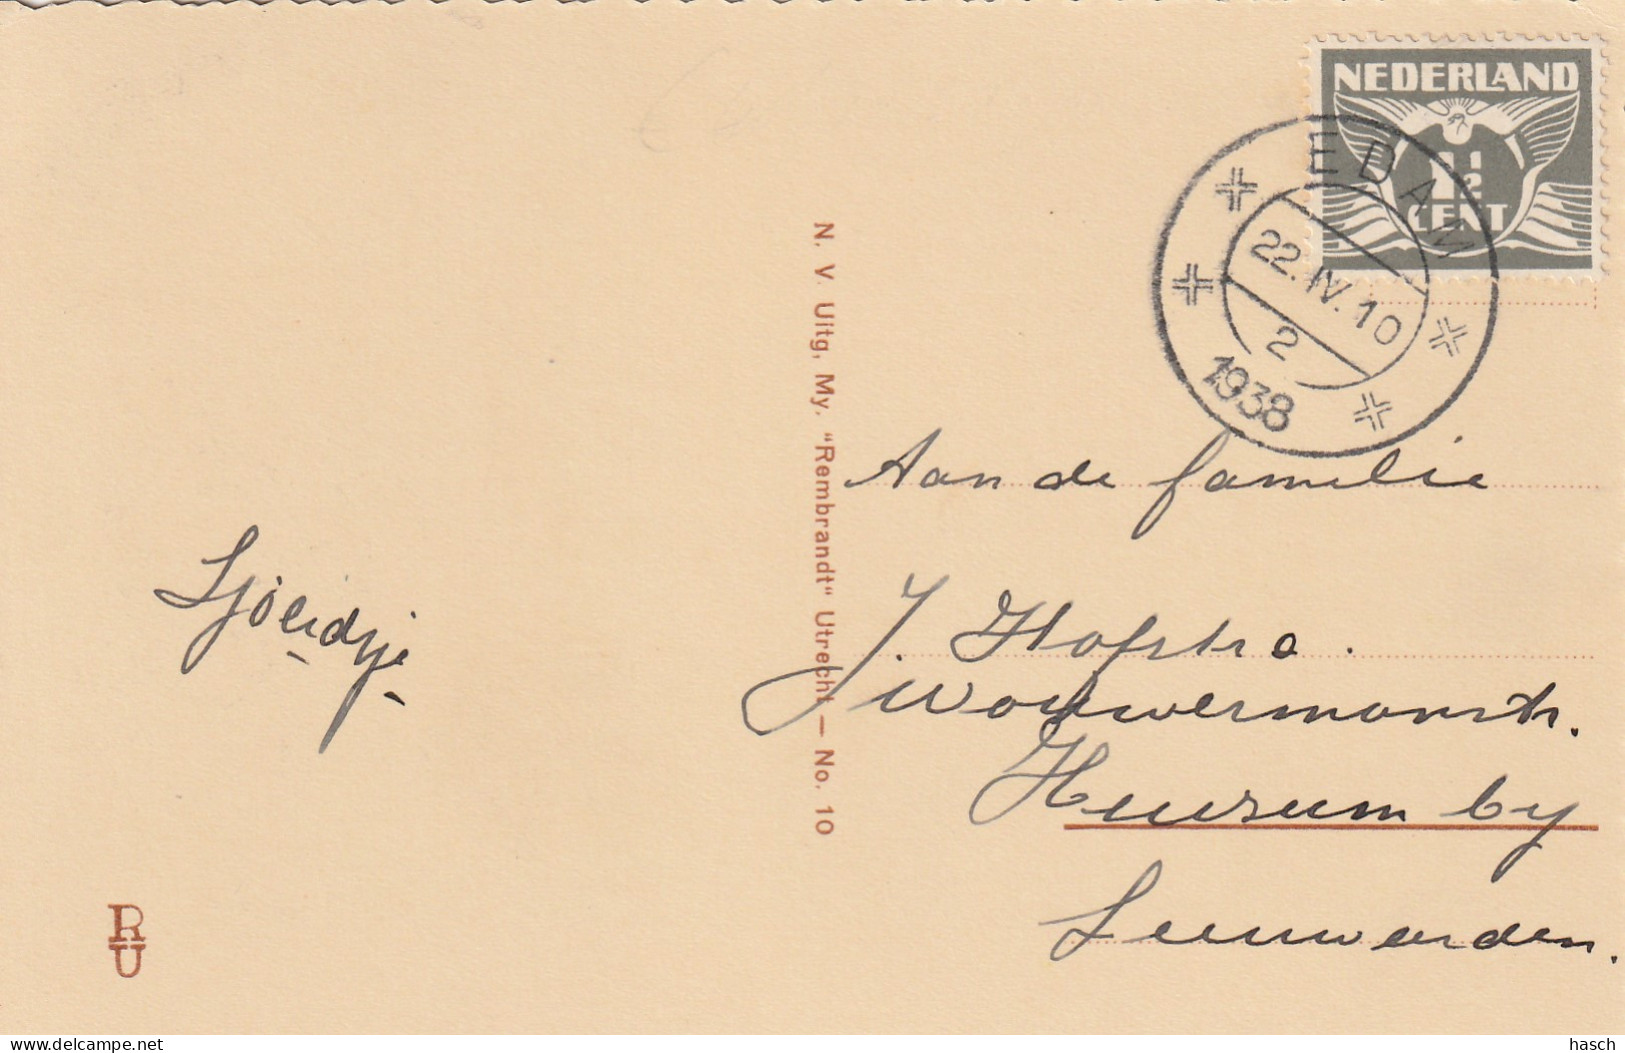 NEDERLAND
1 1/2
CENT
EDAM
22.IV.10
2
1938
N. V. Uitg, My. "Rembrandt" Utrecht — No. 10
Aan de familie
J. Hofstra.
Wouwermanstr.
Huizum by
Leeuwarden.
Sjoerdje
RU
delcampe.net
hasch